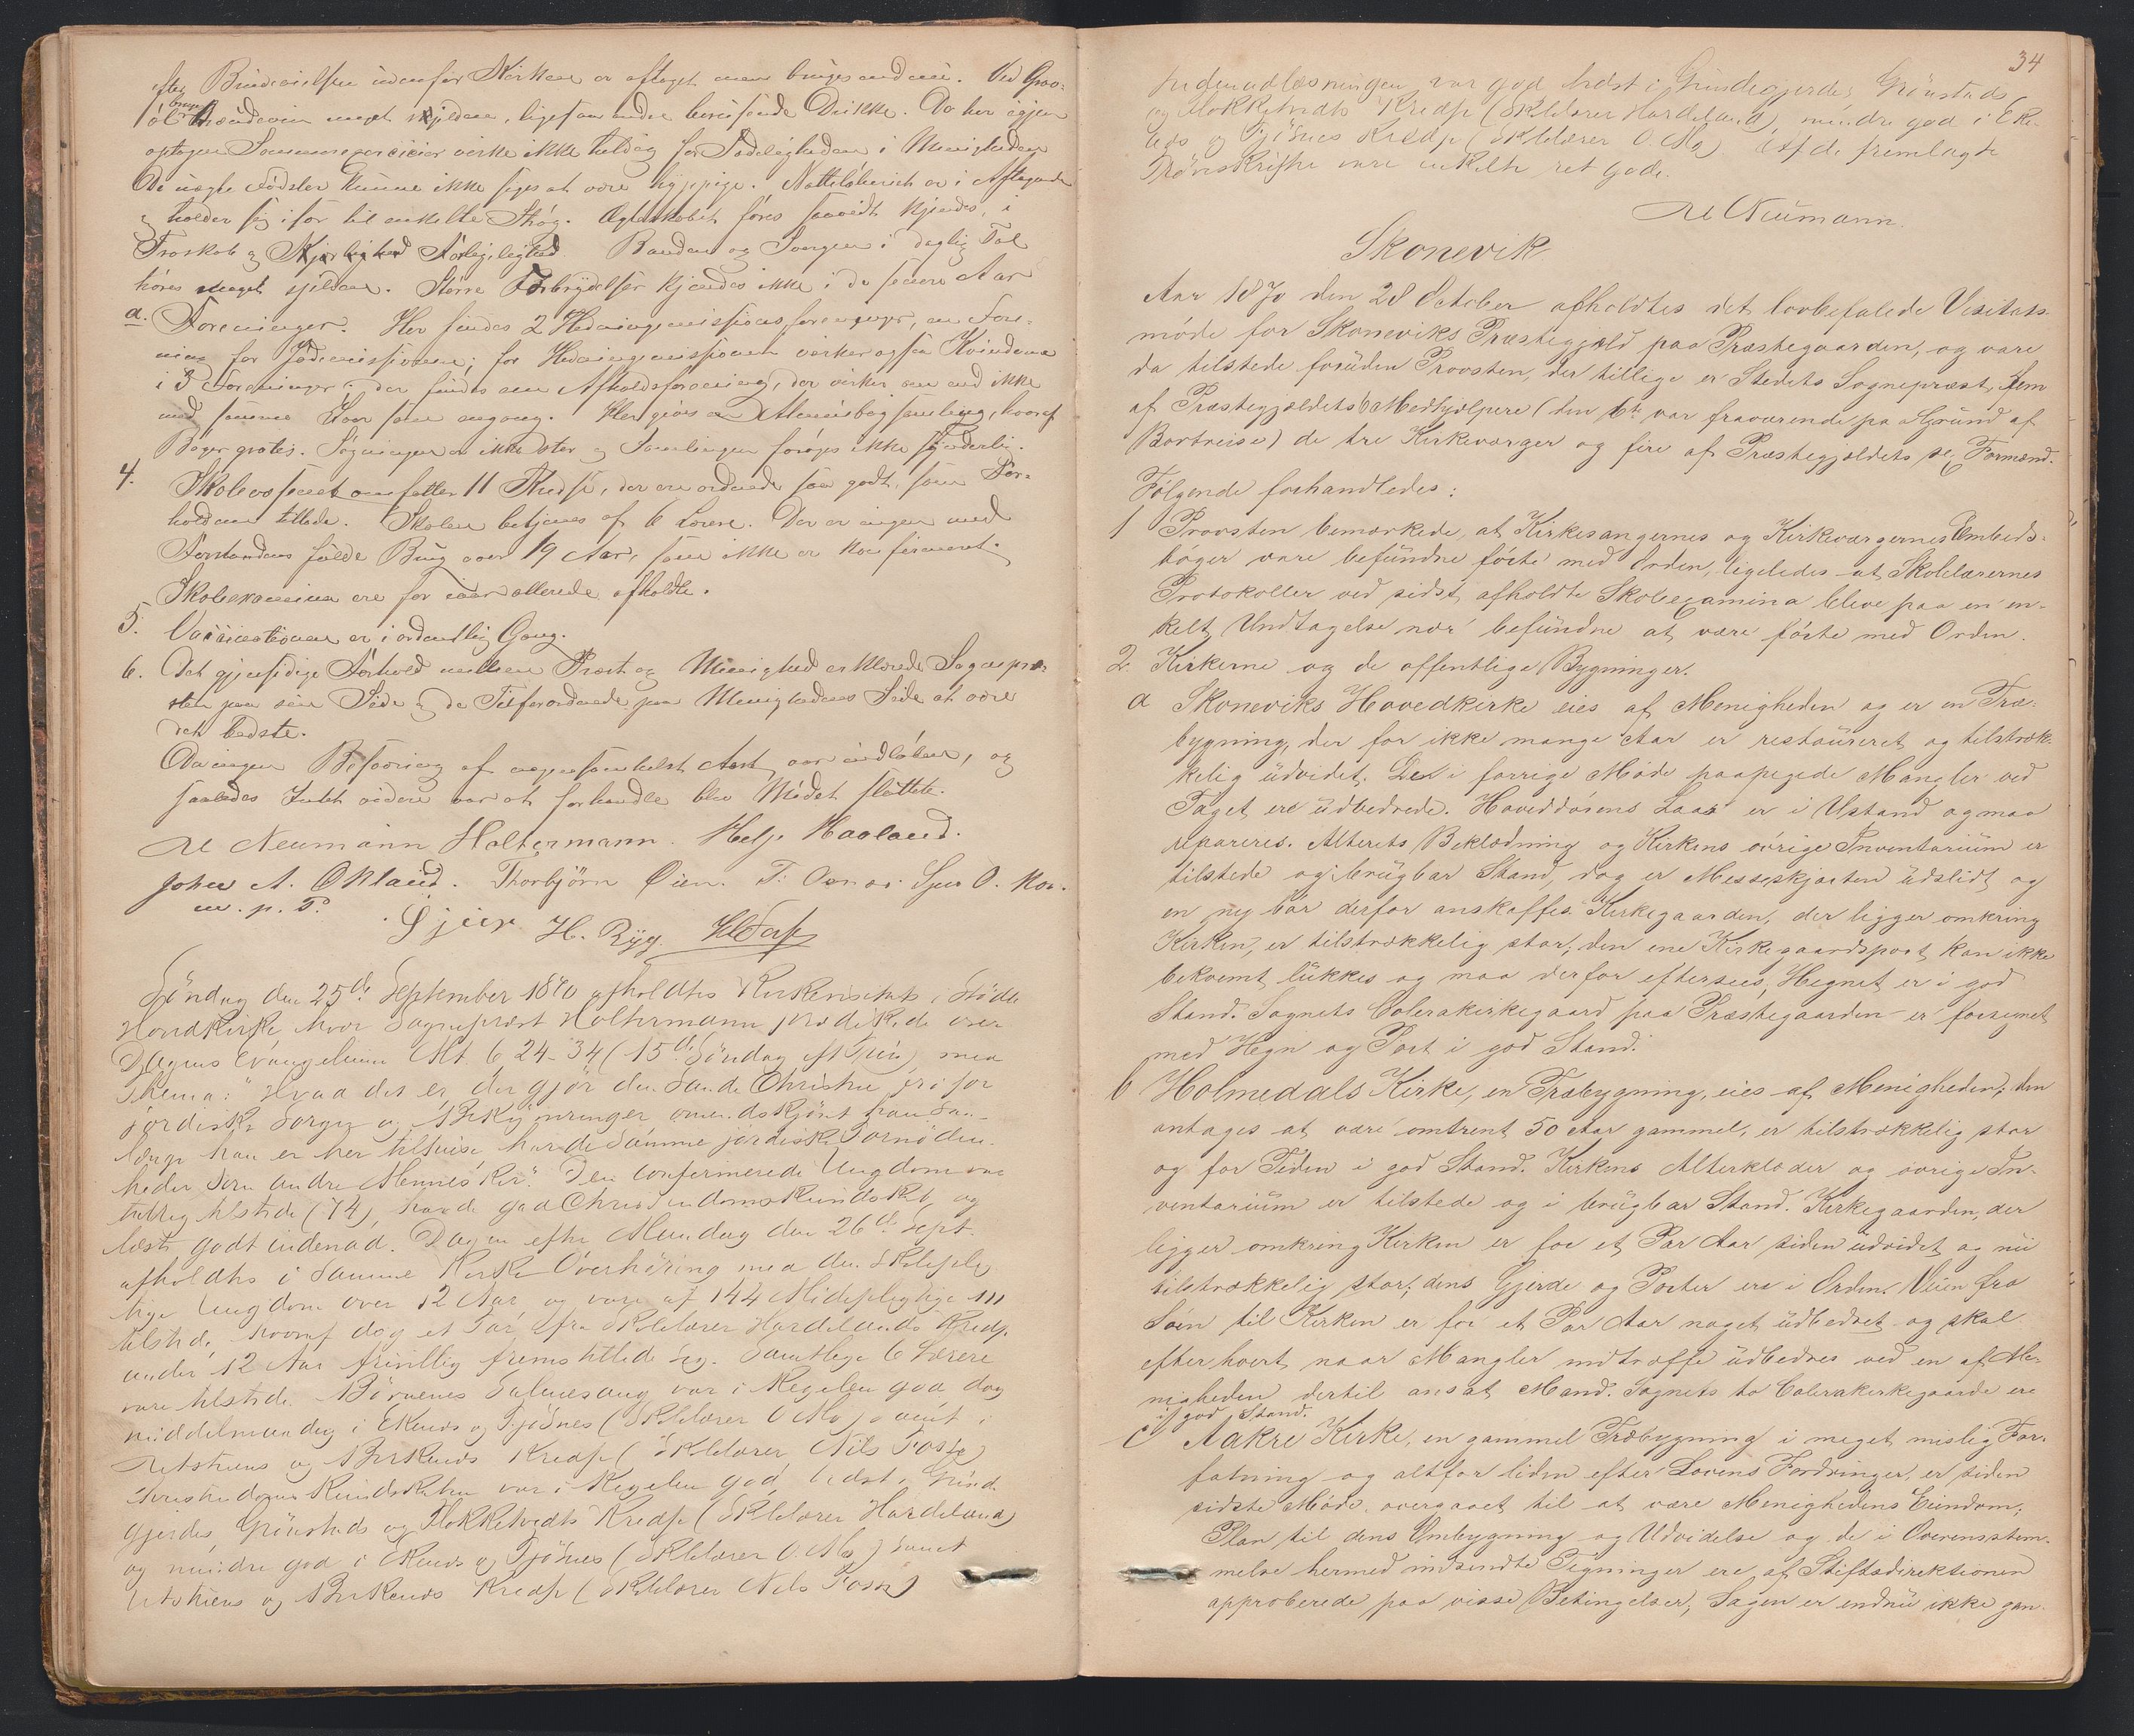 efter Brudevielsen udenfor Kirken er aftaget men bruges endnu. Ved Grav-
øl bruges Brændeviin meget sjelden, ligesom andre berusende Drikke. De her igjen
optagne Sommerexercicier virke ikke heldig for Sædeligheden i Menigheden
De uægte Fødsler kunne ikke siges at være hyppige. Natteløberiet er i Aftagende
og holder sig især til enkelte Strøg. Ægteskabet føres saavidt kjendes, i
Troskab og Kjærlighed Banden og Sværgen i daglig Tal
høres meget sjelden. Større Forbrydelser kjendes ikke i de senere Aar
a. Foreninger. Her findes 2 Hedningemissionsforeninger, en Fore-
ning for Jødemissionen; for Hedningemissionen virker ogsaa Kvinderne
i 3 Foreninger; der findes en Afholdsforening, der virker om end ikke
med samme Iver som engang. Her gives en Almuebogsamling, hvoraf
Bøger gratis. Søgningen er ikke stor og Samlingen forøges ikke synderlig.
4. Skolevæsenet omfatter 11 Kredse, der ere ordnede saa godt, som For-
holdene tillade. Skolen betjenes af 6 Lærere. Der er ingen med
Forstandens fulde Brug over 19 Aar, som ikke er konfirmeret.
Skoleexamina ere for iaar allerede afholdte.
5. Vaccinationen er i ordentlig Gang.
6. Det gjensidige Forhold mellem Præst og Menighed erklærede Sognepræ-
sten paa sin Side og de Tilforordnede paa Menighedens Side at være
det bedste.
Da ingen Besværing af nogensomhelst Art var indløben, og
saaledes Intet videre var at forhandle blev Mødet sluttet.
Neumann Holtermann. Helje Haaland.
John A. Økland. Thorbjørn Øien. Sjur O.
m. p. P. H. Ryg.
Søndag den 25de September 1870 afholdtes Kirkevisitats i Stødle
Hovedkirke hvor Sognepræst Holtermann prædikede over
Dagens Evangelium Mt. 6 24-34 (15de Søndag eft Trin) med
Thema: "Hvad det er der gjør den Sande Christen fri for
jordiske Sorger og Bekymringer omendskjønt han saa-
længe han er her tilsuise havde Samme jordiske Fornøden-
heder som andre Mennesker". Den confirmerede Ungdom var
talrig tilstede (74), havde god Christendomskundskab og
læste godt indenad. Dagen efter Mandag den 26de Sept.
afholdtes i Samme Kirke Overhøring med den Skoleplig-
tige Ungdom over 12 Aar og vare af 144 Mødepligtige 111
tilstede, hvoraf dog et Par fra Skolelærer Hardelands Kreds
under 12 Aar frivillig fremstillede sig. Samtlige 6 Lærere
vare tilstede. Børnenes Salmesang var i Regelen god, dog
middelmaadig i Ekenes og Tjøsnes (Skolelærer O Mo) samt i
og Birkenes Kredse (Skolelærer Nils Fosse)
Christendomskundskaben var i Regelen god, bedst i Grinde-
gjerdes, Grønstads og Flokketvedts Kredse (Skolelærer Hardeland)
og mindre god i Ekenes og Tjøsnes (Skolelærer O. Mo) samt
og Birkenes Kredse (Skolelærer Nils Fosse)
34
Indenadlæsningen var god bedst i Grindegjerdes Grønstads
og Flokketvedts Kredse (Skolelærer Hardeland) mindre god i Eke-
nes og Tjøsnes Kredse (Skolelærer O. Mo). Af de fremlagte
Prøveskrifter vare enkelte ret gode.
Neumann.
Skonevik
Aar 1870 den 28 October afholdtes det lovbefalede Visitats-
møde for Skoneviks Præstegjæld paa Præstegaarden, og vare
da tilstede foruden Provsten, der tillige er Stedets Sognepræst, fem
af Præstegjældets 6 Medhjælpere (den 6te var fraværende paa Grund af
Bortreise) de tre Kirkeværger og fire af Præstegjældets sex Formænd.
Følgende forhandledes:
1 Provsten bemærkede, at Kirkesangernes og Kirkeværgernes Embeds-
bøger vare befundne førte med Orden, ligeledes at Skolelærernes
Protokoller ved sidst afholdte Skoleexamina bleve paa en en-
kelt Undtagelse nær befundne at være førte med Orden.
2. Kirkerne og de offentlige Bygninger.
a Skoneviks Hovedkirke eies af Menigheden og er en Træ-
bygning, der for ikke mange Aar er restaureret og tilstræk-
kelig udvidet. De i forrige Møde paapegede Mangler ved
Taget ere udbedrede. Hoveddørens Laas er i Ustand og maa
repareres. Alterets Beklædning og Kirkens øvrige Inventarium er
tilstede og i brugbar Stand, dog er Messeskjorten udslidt og
en ny bør derfor anskaffes. Kirkegaarden, der ligger omkring
Kirken, er tilstrækkelig stor; den ene Kirkegaardsport kan ikke
bekvemt lukkes og maa derfor eftersees, Hegnet er i god
Stand. Sognets Colerakirkegaard paa Præstegaarden er forsynet
med Hegn og Port i god Stand.
b Holmedals Kirke, en Træbygning, eies af Menigheden; den
antages at være omtrent 50 Aar gammel, er tilstrækkelig stor
og for Tiden i god Stand. Kirkens Alterklæder og øvrige In-
ventarium er tilstede og i brugbar Stand. Kirkegaarden, der
ligger omkring Kirken er for et Par Aar siden udvidet og nu
tilstrækkelig stor; dens Gjerde og Porter ere i Orden. Veien fra
Søen til Kirken er for et Par Aar noget udbedret og skal
efterhvert naar Mangler indtræffe udbedres ved en af Me-
nigheden dertil ansat Mand. Sognets to Colerakirkegaarde ere
i god Stand.
c Aakre Kirke, en gammel Træbygning i meget mislig For-
fatning og altfor liden efter Lovens Fordringer, er siden
sidste Møde overgaaet til at være Menighedens Eiendom;
Plan til dens Ombygning og Udvidelse og de i Overensstem-
melse hermed indsendte Tegninger ere af Stiftsdirektionen
approberede paa visse Betingelser; Sagen er endnu ikke gan-